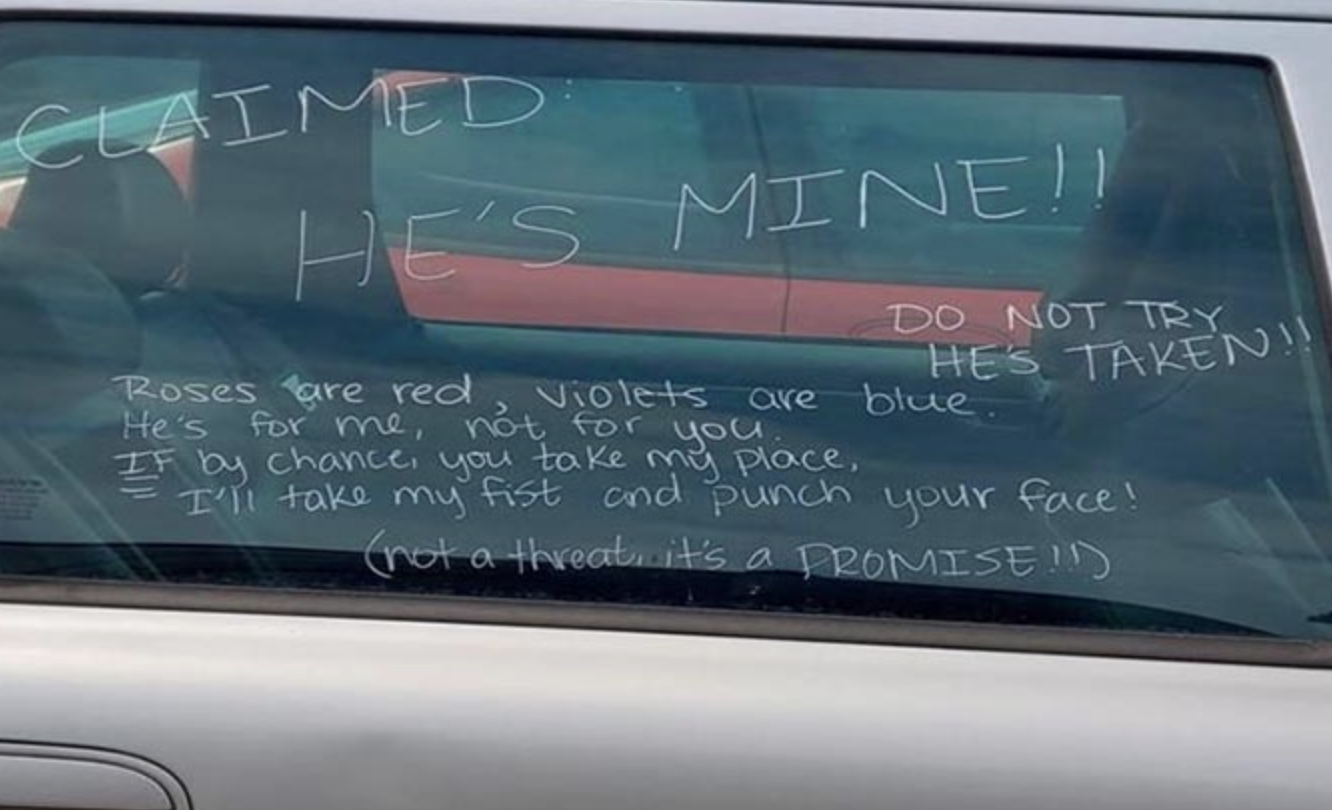 CLAIMED:
HE'S MINE!!
DO NOT TRY
HE'S TAKEN!!
Roses are red, violets are blue.
He's for me, not for you.
IF by chance, you take my place,
I'll take my fist and punch your face!
(not a threat, it's a PROMISE!!)